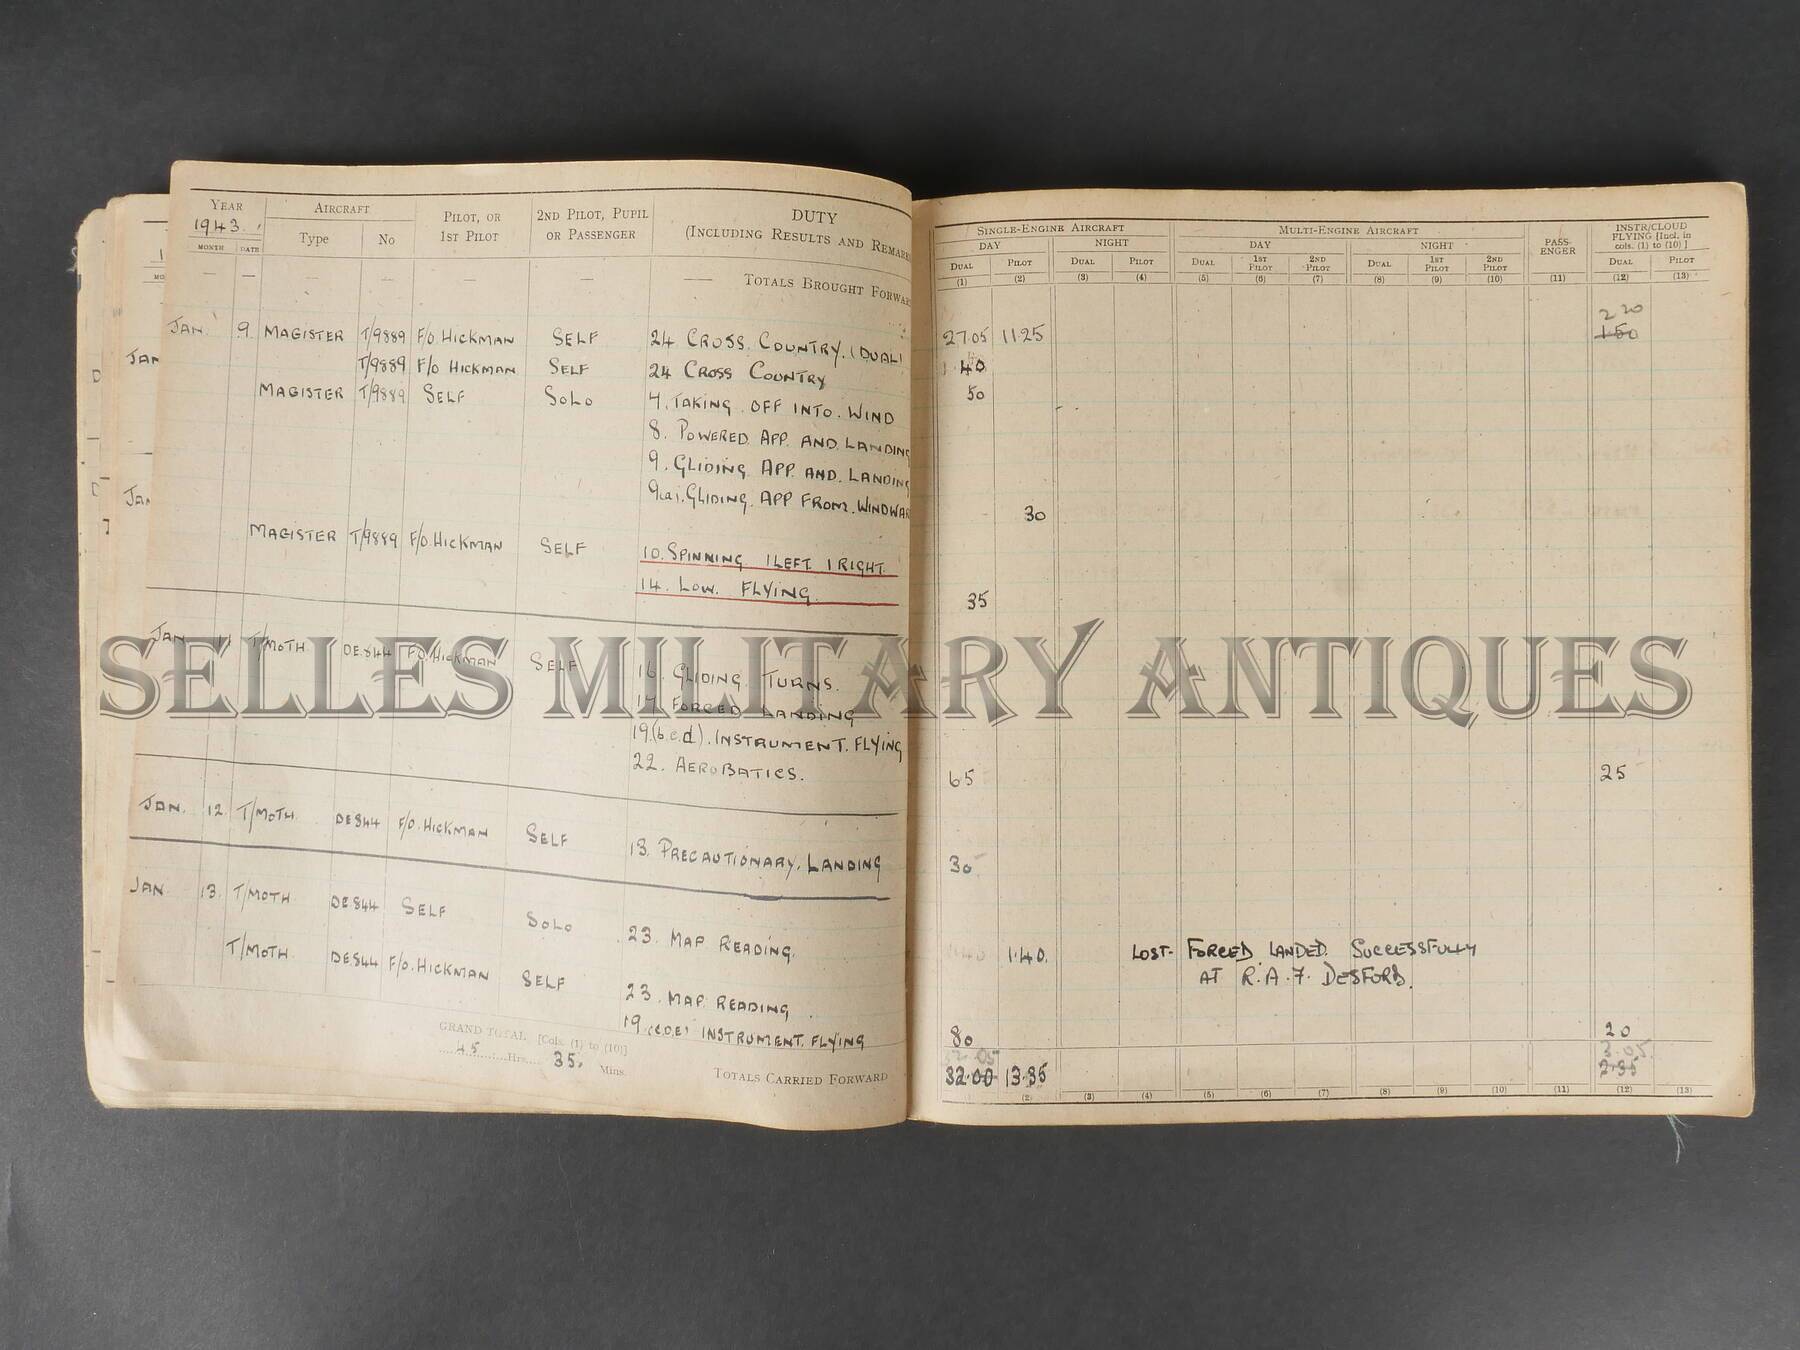 YEAR AIRCRAFT PILOT, OR 2ND PILOT, PUPIL DUTY
1943. Type No 1ST PILOT OR PASSENGER (INCLUDING RESULTS AND REMARK
MONTH DATE
— — — — — — — TOTALS BROUGHT FORWAR
JAN. 9. MAGISTER T/9889 F/O. HICKMAN SELF 24 CROSS. COUNTRY. (DUAL)
T/9889 F/O HICKMAN SELF 24 CROSS COUNTRY
MAGISTER T/9889 SELF SOLO 4. TAKING. OFF INTO. WIND
8. POWERED. APP. AND. LANDING
9. GLIDING. APP. AND. LANDING
9(a). GLIDING. APP FROM. WINDWAR
MAGISTER T/9889 F/O. HICKMAN SELF 10. SPINNING 1 LEFT. 1 RIGHT.
14. LOW. FLYING.
JAN. 11. T/MOTH. DE844 F/O. HICKMAN SELF 16. GLIDING. TURNS.
17. FORCED LANDING
19.(b.c.d). INSTRUMENT. FLYING
22. AEROBATICS.
JAN. 12. T/MOTH. DE844 F/O. HICKMAN SELF 13. PRECAUTIONARY. LANDING
JAN 13. T/MOTH. DE844 SELF SOLO 23. MAP READING.
T/MOTH. DE844 F/O. HICKMAN SELF 23. MAP READING.
19.(C.D.E) INSTRUMENT. FLYING
GRAND TOTAL [Cols. (1) to (10)]
45 Hrs. 35. Mins.
TOTALS CARRIED FORWARD
SINGLE-ENGINE AIRCRAFT MULTI-ENGINE AIRCRAFT PASS- ENGER INSTR/CLOUD FLYING [Incl. in cols. (1) to (10)]
DAY NIGHT DAY NIGHT
DUAL PILOT DUAL PILOT DUAL 1ST PILOT 2ND PILOT DUAL 1ST PILOT 2ND PILOT DUAL PILOT
(1) (2) (3) (4) (5) (6) (7) (8) (9) (10) (11) (12) (13)
2 20
27.05 11.25 1.50
1.40
50
30
35
65 25
30
1.40 1.40. LOST- FORCED. LANDED. SUCCESSFULLY
AT R.A.F. DESFORD.
80 20
32.05 3.05.
32.00 13.35 2.35
(2) (3) (4) (5) (6) (7) (8) (9) (10) (11) (12) (13)
JAN
JAN
SELLES MILITARY ANTIQUES